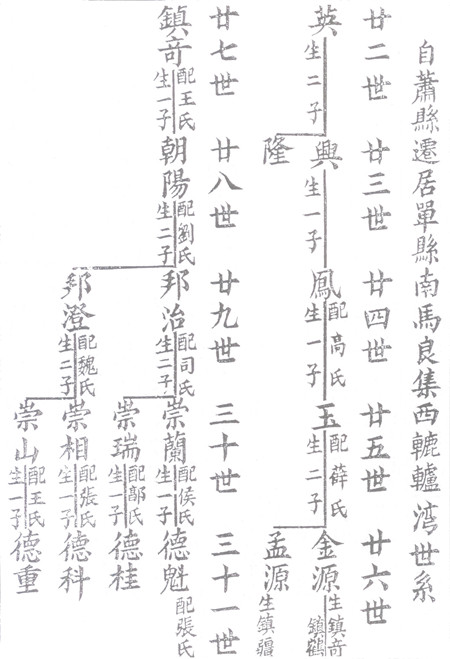 自蕭縣遷居單縣南馬良集西轆轤湾世系
廿二世 廿三世 廿四世 廿五世 廿六世
英 生二子 興 生一子 鳳 配高氏 生一子 玉 配薛氏 生二子 金源 生鎮竒 鎮鶴
隆 孟源 生鎮疆
廿七世 廿八世 廿九世 三十世 三十一世
鎮竒 配王氏 生一子 朝陽 配劉氏 生二子 邦治 配司氏 生二子 崇蘭 配侯氏 生一子 德魁 配張氏
崇瑞 配鄗氏 生一子 德桂
邦澄 配魏氏 生二子 崇相 配張氏 生一子 德科
崇山 配王氏 生一子 德重